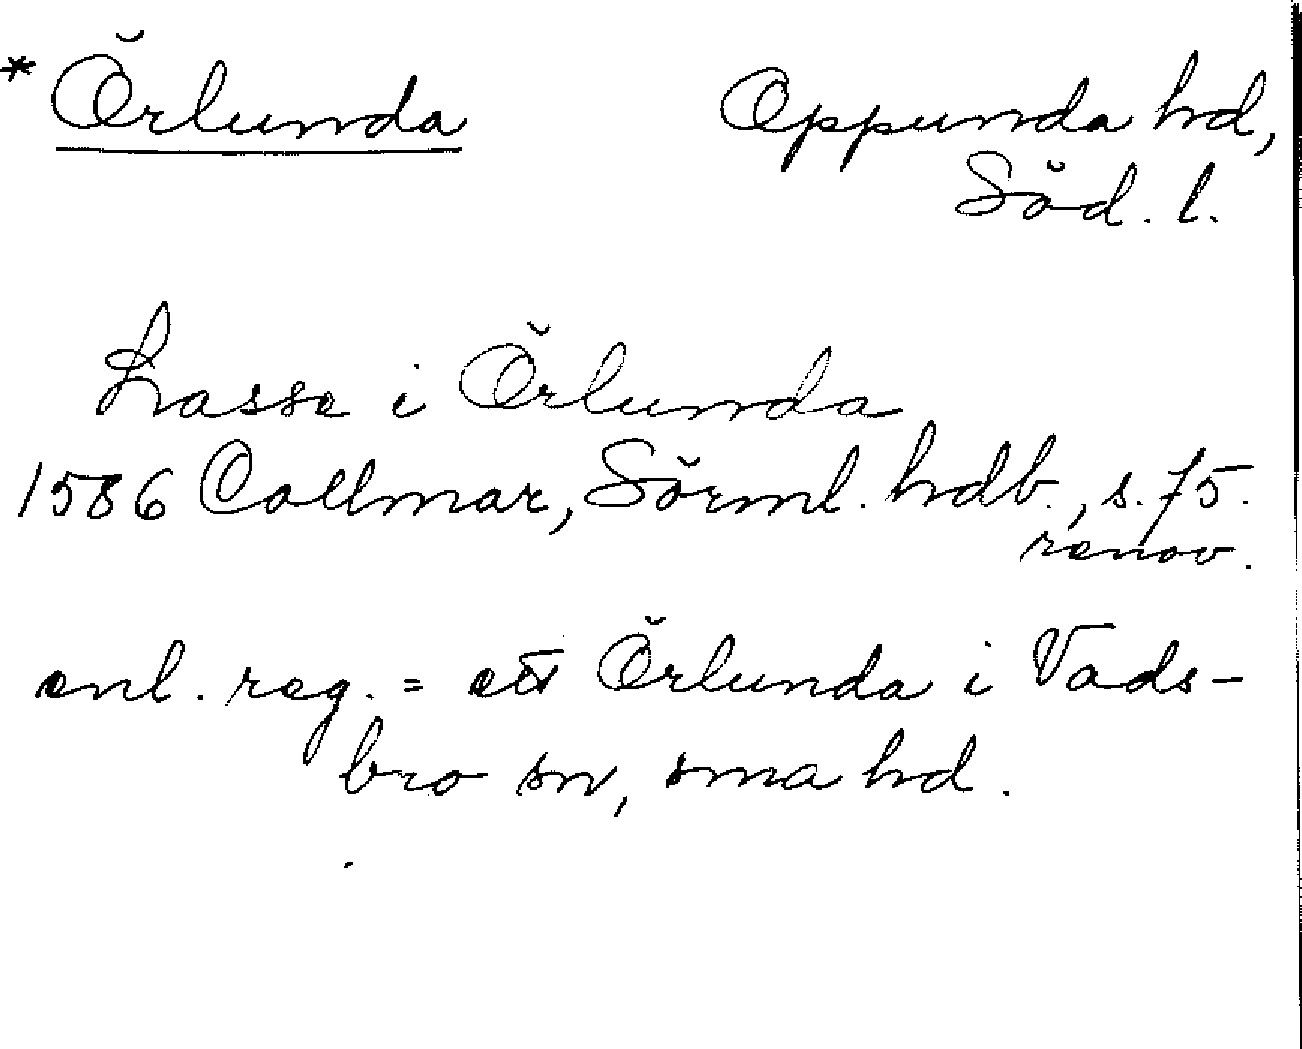 * Örlunda
Oppunda hd,
Söd. l.
Lasse i Örlunda
1586 Collmar, Sörml. hdb., s. 75.
renov.
enl. reg. = ett Örlunda i Vads-
bro sn, sma hd.